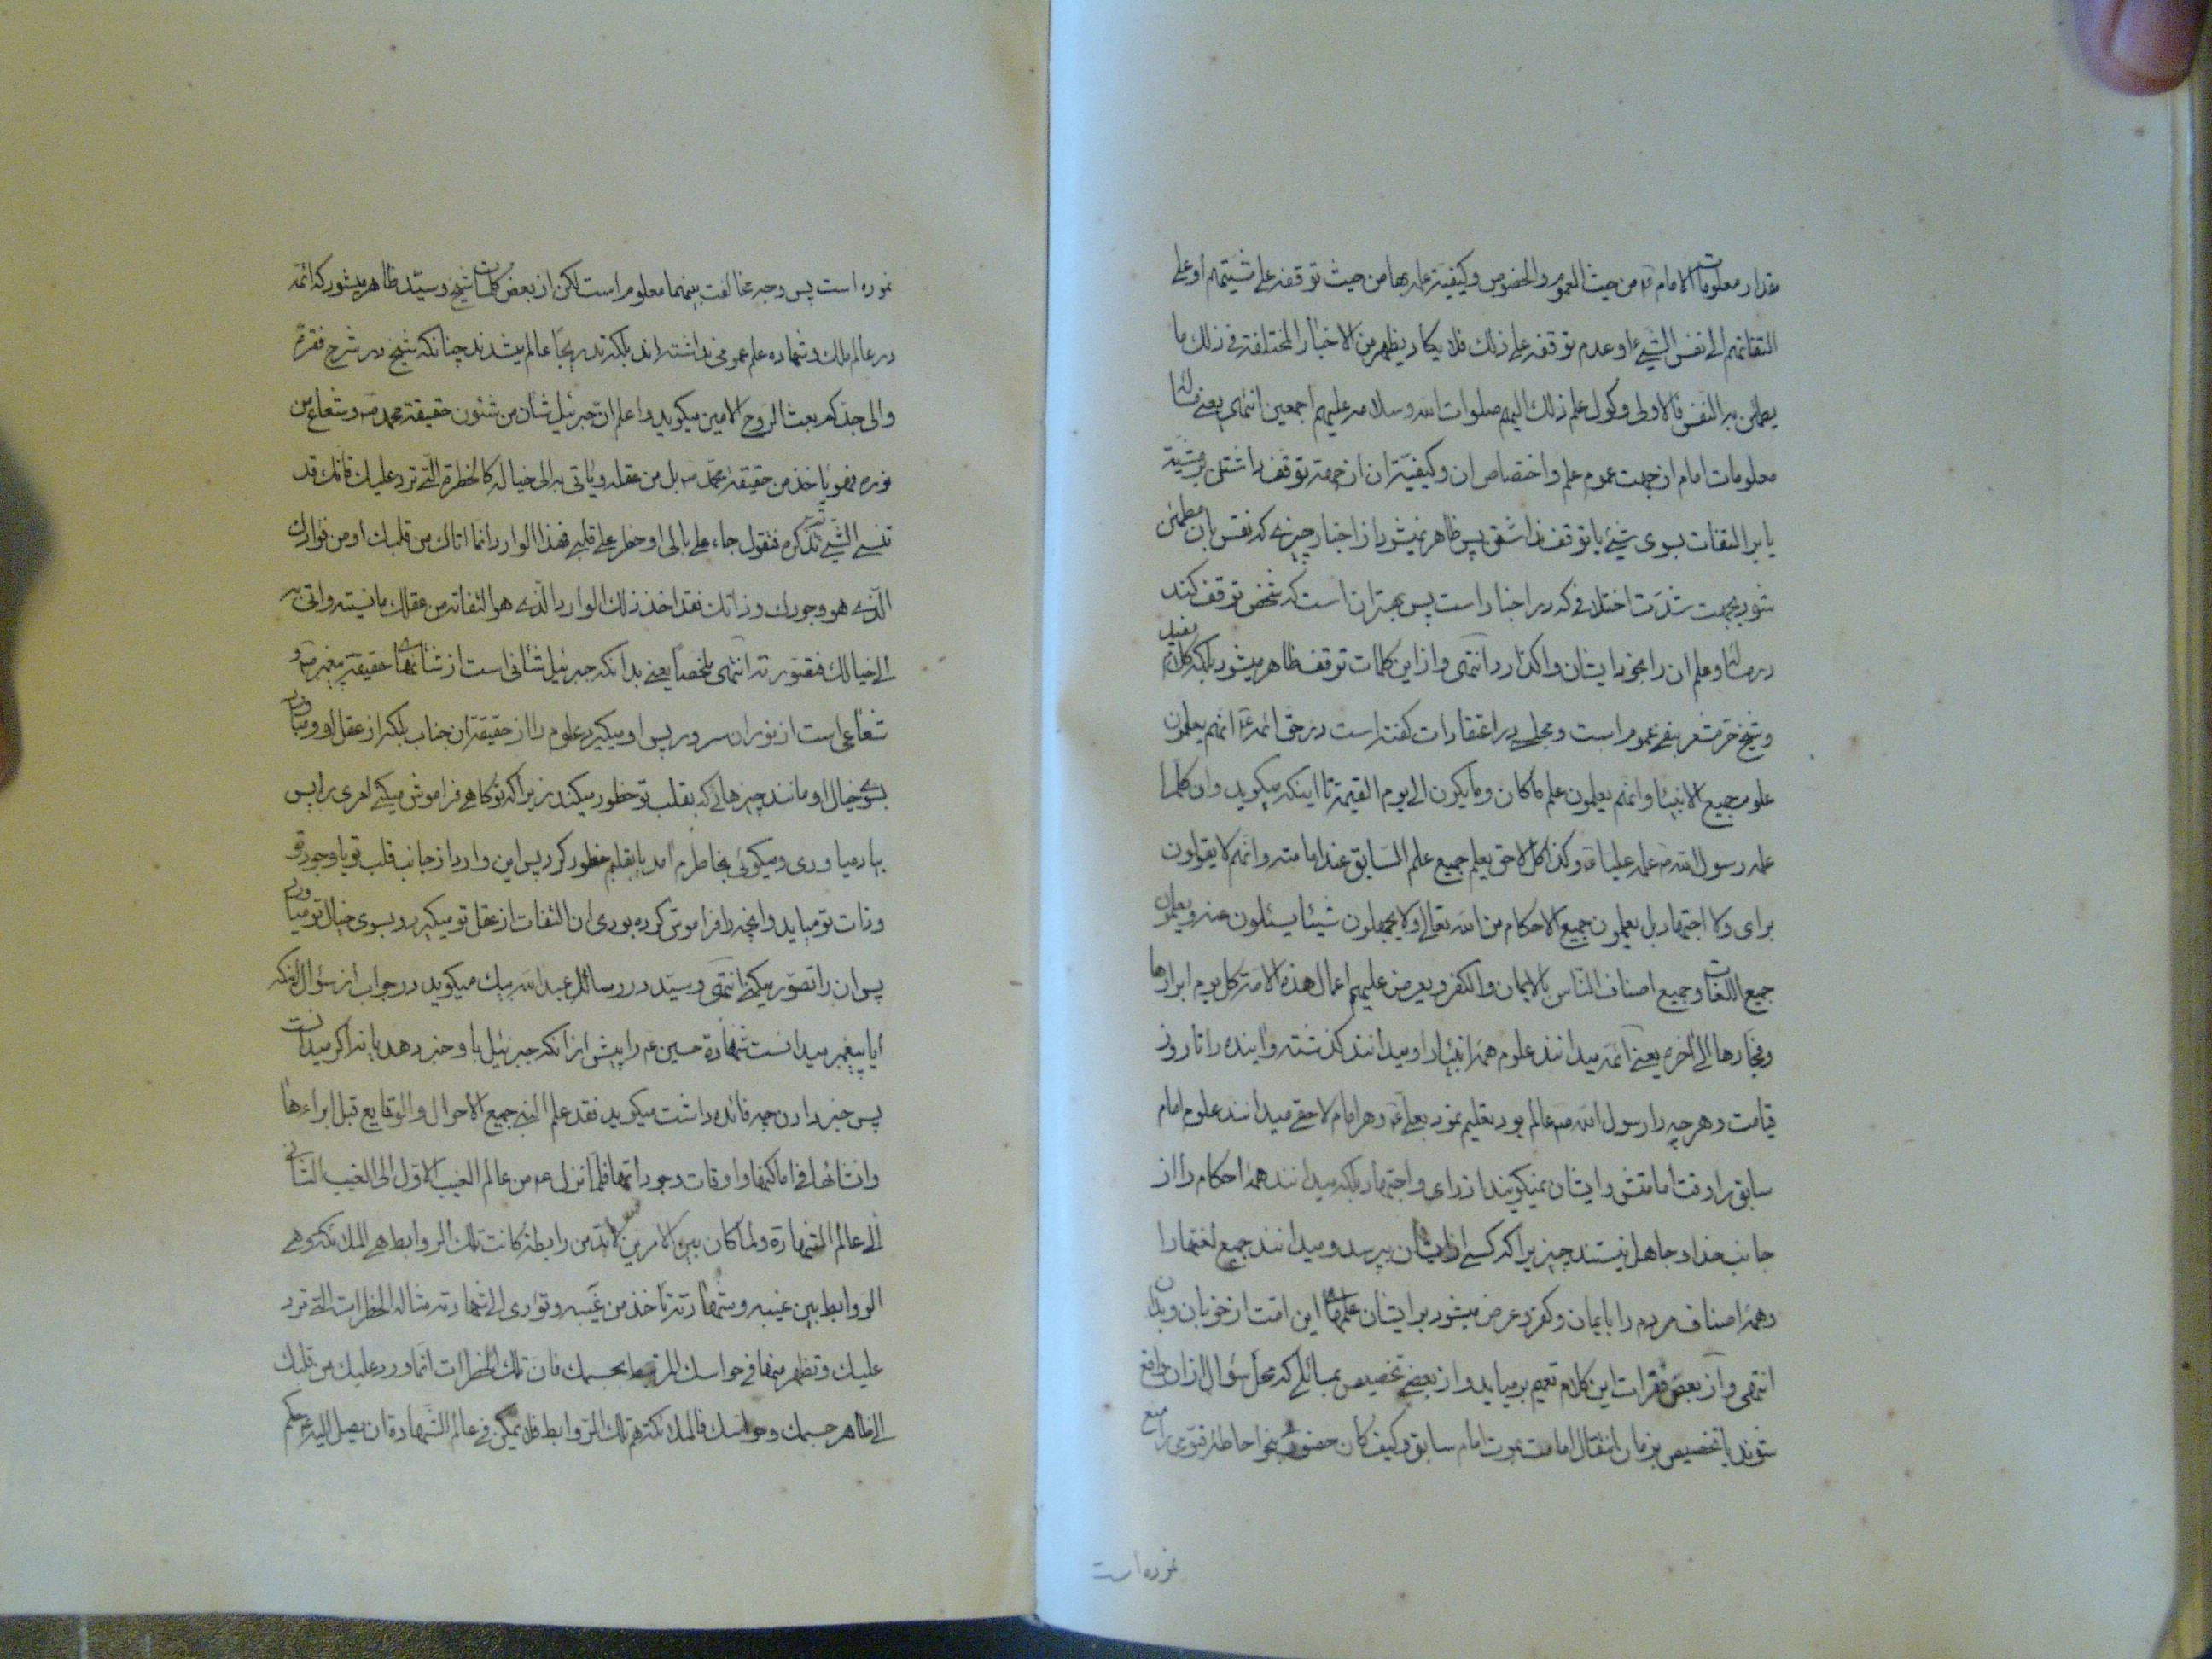 مقدار معلومات الامام ع من حيث العموم والخصوص وكيفية علمه بها من حيث توقفه على مشيتهم او على
التفاتهم الى نفس الشيء او عدم توقفه على ذلك فلا يكاد يظهر من الاخبار المختلفة فى ذلك ما
يطمئن به النفس فالاولى وكول علم ذلك اليهم صلوات الله وسلامه عليهم اجمعين انتهى يعنى مسئله
معلومات امام از جهت عموم علم واختصاص ان وكيفيّة ان از جهة توقف داشتن بر مشيّة
يا بر التفات بسوى شيئ يا توقف نداشتن پس ظاهر نميشود از اخبار چيزى كه نفس بان مطمئن
شود بجهت شدّت اختلافى كه در اخبار است پس بهتر ان است كه شخص توقف كند
در مسئله وعلم ان را بخود ايشان واگذارد انتهى واز اين كلمات توقف ظاهر ميشود بلكه كلام مفيد
وشيخ حرّ مشعر بنفى عموم است ومجلسى در اعتقادات گفته است در حق ائمه ع انهم يعلمون
علوم جميع الانبياء وانهم يعلمون علم ما كان وما يكون الى يوم القيمة تا اينكه ميكويد وان كلما
علمه رسول الله ص علمه عليّا ع وكذا كل لاحق يعلم جميع علم السّابق عند امامته وانهم لا يقولون
براى ولا اجتهاد بل يعلمون جميع الاحكام من الله تعالى ولا يجهلون شيئا يسئلون عنه ويعلمون
جميع اللغات وجميع اصناف النّاس بالايمان والكفر ويعرض عليهم اعمال هذه الامّة كل يوم ابرارها
وفجّارها الى اخره يعنى ائمّه ميدانند علوم همه انبياء را وميدانند كذشته واينده را تا روز
قيامت وهر چه را رسول الله ص عالم بود تعليم نمود بعلى ع وهر امام لاحقى ميدانند علوم امام
سابق را وقت امامتش وايشان نميكويند از راى واجتهاد بلكه ميدانند همه احكام را از
جانب خدا وجاهل نيستند چيزيرا كه كسى از ايشان بپرسد وميدانند جميع لغتها را
وهمه اصناف مردم را بايمان وكفر وعرض ميشود بر ايشان عملهاى اين امّت از خوبان وبدان
انتهى واز بعض فقرات اين كلام تعميم بر ميايد واز بعضى تخصيص بمسائلى كه محل سؤال از ان واقع
شوند يا تخصيص بزمان انتقال امامت بموت امام سابق وكيف كان حضور بنحو احاطه قيّومى را منع
نموده است
نموده است پس وجه مخالفت بينهما معلوم است لكن از بعض كلمات شيخ وسيّد ظاهر ميشود كه ائمّه
در عالم ملك وشهاده علم عمومى نداشته اند بلكه تدريجًا عالم ميشدند چنانكه شيخ در شرح فقره
والى جدّكم بعث الرّوح الامين ميكويد واعلم انّ جبرئيل شأن من شئون حقيقة محمد ص وشعاع من
نوره فهو ياخذ من حقيقة محمّد ص بل من عقله وياتى به الى خياله كالخطرة الّتى ترد عليك فانك قد
تنسى الشّيء ثم تذكره فتقول جاء على بالى او خطر على قلبى فهذا الوارد انّما اتاك من قلبك او من فؤادك
الّذى هو وجودك وذاتك فقد اخذ ذلك الوارد الّذى هو التفاته من عقلك ما نسيته واتى به
الى خيالك فتصورته انتهى ملخصًا يعنى بدانكه جبرئيل شأنى است از شأنهاى حقيقة پيغمبر ص و
شعاعى است از نور ان سرور پس او ميگيرد علوم را از حقيقة ان جناب بلكه از عقل او ومياورد
بسوى خيال او مانند چيزهائى كه بقلب تو خطور ميكند زيرا كه تو كاهى فراموش ميكنى امرى را پس
بياد مياورى وميكوئى بخاطرم امد يا بقلبم خطور كرد پس اين وارد از جانب قلب تو يا وجود تو
وذات تو ميايد وانچه را فراموش كرده بودى ان التفات از عقل تو ميگيرد وبسوى خيال تو مياورد
پس ان را تصوّر ميكنى انتهى وسيّد در رساله عبد الله بيك ميكويد در جواب از سؤال اينكه
ايا پيغمبر ميدانست شهادة حسين ع را پيش از انكه جبرئيل باو خبر دهد يا نه اكر ميدانست
پس خبر دادن چه فائده داشت ميكويد فقد علم النبى جميع الاحوال والوقايع قبل ابراءها
وانشائها فى اماكنها واوقات وجوداتها فلمّا نزل ع من عالم الغيب الاوّل الى الغيب الثّانى
الى عالم الشهادة ولما كان بين الامرين لابد من رابطة كانت تلك الروابط هى الملائكة وهى
الرّوابط بين غيبه وشهادته تأخذ من غيبه وتؤدى الى شهادته مثاله الخطرات التى ترد
عليك وتظهر منها فى حواسك المرتبطة بجسمك فانّ تلك الخطرات انّما ورد عليك من قلبك
الى ظاهر جسمك وحواسك فالملائكة هم تلك الرّوابط فلا يمكن فى عالم الشّهادة ان يصل اليه ع حكم